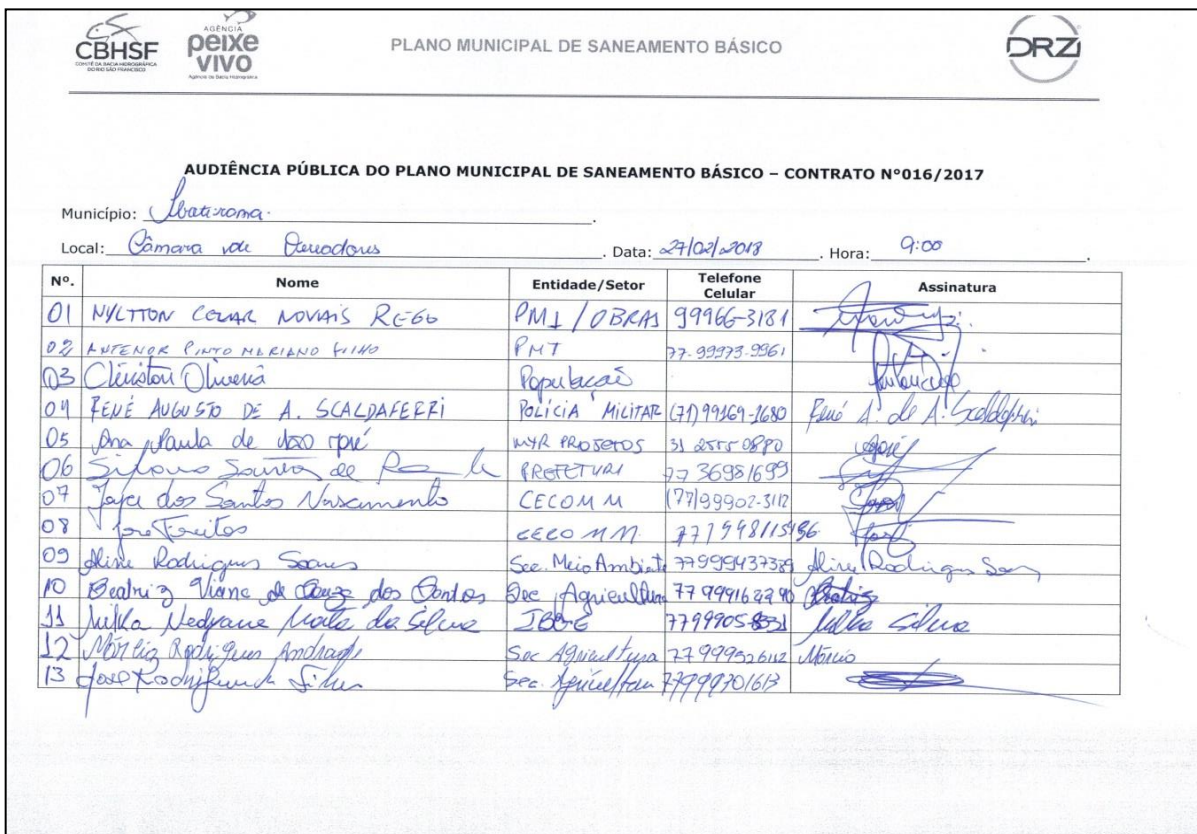 CBHSF
COMITÊ DA BACIA HIDROGRÁFICA
DO RIO SÃO FRANCISCO
AGÊNCIA
peixe
vivo
Agência de Bacia Hidrográfica
PLANO MUNICIPAL DE SANEAMENTO BÁSICO
DRZ
AUDIÊNCIA PÚBLICA DO PLANO MUNICIPAL DE SANEAMENTO BÁSICO – CONTRATO N°016/2017
Município: Ibotirama.
Local: Câmara de Vereadores. Data: 27/02/2018. Hora: 9:00.
Nº. Nome Entidade/Setor Telefone Celular Assinatura
01 NYLTTON CEZAR NOVAIS REGO PMI/OBRAS 99966-3181
02 ANTENOR PINTO MARIANO FILHO PMT 77-99973-9961
03 Oliveira População
04 RENÉ AUGUSTO DE A. SCALDAFERRI POLÍCIA MILITAR (71)99169-1680 René A. de A. Scaldaferri
05 Ana Paula de MYR PROJETOS 31 2555 0880
06 de PREFEITURA 77 36981699
07 dos Santos Nascimento CECOMM (77)99902-3112
08 Freitas CECOMM 77
09 Aline Rodrigues Soares Sec. Meio Ambiente 77999437389 Aline Rodrigues
10 Beatriz Viana de Souza dos Santos Sec Agricultura Beatriz
11 Mata da Silva IBGE Silva
12 Rodrigues Andrade Sec Agricultura 77 999526112 Márcio
13 José Silva Sec. Agricultura 77999701613